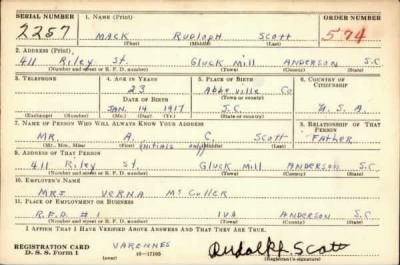 SERIAL NUMBER 1. NAME (Print) ORDER NUMBER
2257 MACK RUDOLPH SCOTT 574
(First) (Middle) (Last)
2. ADDRESS (Print)
411 Riley St. GLUCK MILL ANDERSON S.C.
(Number and street or R. F. D. number) (Town) (County) (State)
3. TELEPHONE 4. AGE IN YEARS 5. PLACE OF BIRTH 6. COUNTRY OF CITIZENSHIP
23 Abbeville Co
DATE OF BIRTH (Town or county)
JAN. 14 1917 S.C. U.S.A.
(Exchange) (Number) (Mo.) (Day) (Yr.) (State or country)
7. NAME OF PERSON WHO WILL ALWAYS KNOW YOUR ADDRESS 8. RELATIONSHIP OF THAT PERSON
MR. A. C. SCOTT FATHER
(Mr., Mrs., Miss) (First) (initials only) (Middle) (Last)
9. ADDRESS OF THAT PERSON
411 Riley St. Gluck Mill ANDERSON S.C.
(Number and street or R. F. D. number) (Town) (County) (State)
10. EMPLOYER'S NAME
MRS VERNA McCuller
11. PLACE OF EMPLOYMENT OR BUSINESS
R.F.D. #1 IVA ANDERSON S.C.
(Number and street or R. F. D. number) (Town) (County) (State)
I AFFIRM THAT I HAVE VERIFIED ABOVE ANSWERS AND THAT THEY ARE TRUE.
REGISTRATION CARD VARENNES
D. S. S. Form 1 16-17105 Rudolph Scott